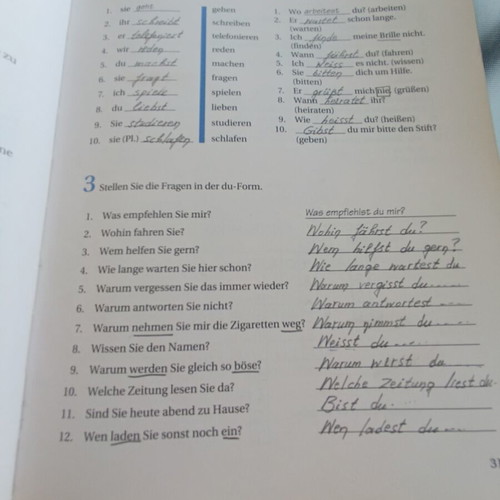 zu
ne
1. sie gehen
2. ihr schreibt schreiben
3. er telefoniert telefonieren
4. wir reden reden
5. du machst machen
6. sie fragt fragen
7. ich spiele spielen
8. du liebst lieben
9. Sie studieren studieren
10. sie (Pl.) schlafen schlafen
1. Wo arbeitest du? (arbeiten)
2. Er wartet schon lange.
(warten)
3. Ich finde meine Brille nicht.
(finden)
4. Wann fährst du? (fahren)
5. Ich weiss es nicht. (wissen)
6. Sie bitten dich um Hilfe.
(bitten)
7. Er grüßt mich nie. (grüßen)
8. Wann heiratet ihr?
(heiraten)
9. Wie heisst du? (heißen)
10. Gibst du mir bitte den Stift?
(geben)
3 Stellen Sie die Fragen in der du-Form.
1. Was empfehlen Sie mir? Was empfiehlst du mir?
2. Wohin fahren Sie? Wohin fährst du?
3. Wem helfen Sie gern? Wem hilfst du gern?
4. Wie lange warten Sie hier schon? Wie lange wartest du
5. Warum vergessen Sie das immer wieder? Warum vergisst du
6. Warum antworten Sie nicht? Warum antwortest
7. Warum nehmen Sie mir die Zigaretten weg? Warum nimmst du
8. Wissen Sie den Namen? Weisst du
9. Warum werden Sie gleich so böse? Warum wirst du
10. Welche Zeitung lesen Sie da? Welche Zeitung liest du.
11. Sind Sie heute abend zu Hause? Bist du.
12. Wen laden Sie sonst noch ein? Wen ladest du